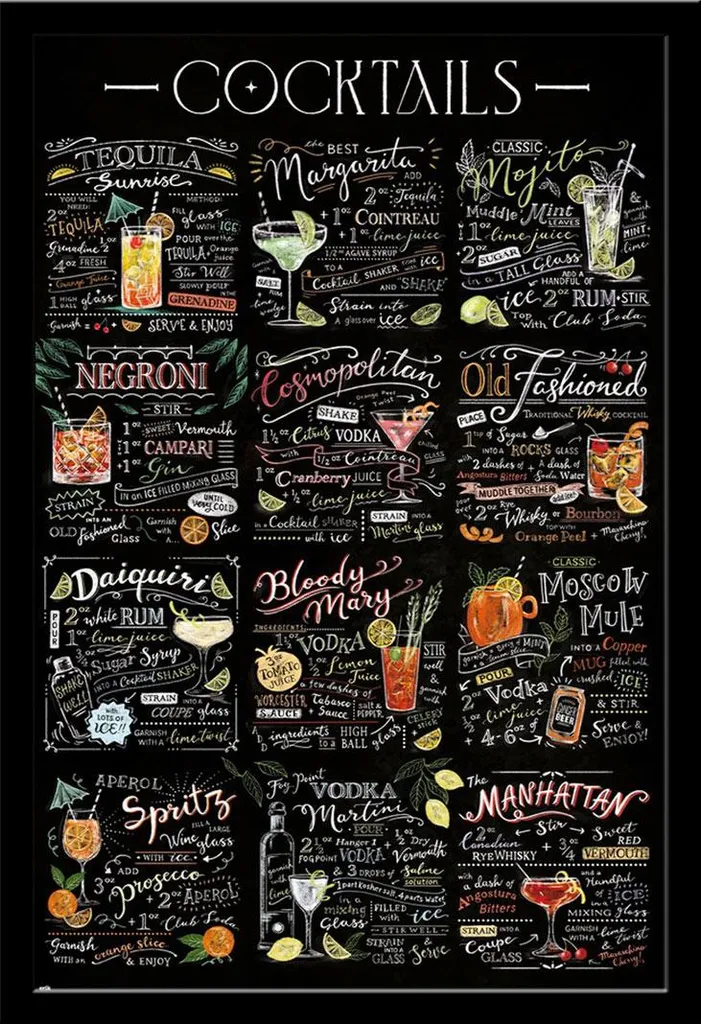 COCKTAILS
TEQUILA
Sunrise
YOU WILL NEED:
2oz
TEQUILA
Grenadine
4oz FRESH
Orange Juice
1 HIGH BALL glass
METHOD:
FILL glass
with ICE
POUR over the
TEQUILA +
Orange juice
Stir Well
SLOWLY POUR
IN THE
GRENADINE
Garnish =
SERVE & ENJOY
the BEST
Margarita
ADD
2oz Tequila
+ 1oz COINTREAU
+ 1oz lime juice
1/2oz AGAVE SYRUP
TO A
Cocktail SHAKER filled with ice
AND SHAKE
SALT
Strain into
A glass over ice
CLASSIC
Mojito
Muddle Mint LEAVES
1oz lime juice
2oz SUGAR
in a TALL Glass
ADD A
HANDFUL OF
ice 2oz RUM + STIR
Top With Club Soda
& garnish with MINT + lime
NEGRONI
STIR
1oz SWEET Vermouth
+ 1oz CAMPARI
+ 1oz Gin
IN an ICE FILLED MIXING GLASS
UNTIL VERY COLD
STRAIN
INTO AN
OLD fashioned Glass
Garnish with a
Slice
Cosmopolitan
Orange Peel Twist
SHAKE
1½oz Citrus VODKA
with 1/2oz Cointreau
1oz Cranberry JUICE
+ ½oz lime juice
chilled
GLASS
in a Cocktail SHAKER
with ice
STRAIN INTO A
Martini glass
Old Fashioned
TRADITIONAL Whisky COCKTAIL
PLACE
1 tsp of Sugar
INTO A ROCKS GLASS
with 2 dashes of + A dash of
Angostura Bitters Soda Water
MUDDLE TOGETHER
add ice
over 2oz Rye
Whisky or Bourbon
TOP WITH
Orange Peel + Maraschino Cherry!
Daiquiri
POUR
2oz white RUM
1oz lime juice
Sugar Syrup
INTO A Cocktail SHAKER
SHAKE WELL
with LOTS OF ICE!!
STRAIN
INTO A
COUPE glass
GARNISH
WITH A lime twist
Bloody
Mary
INGREDIENTS:
VODKA
3oz TOMATO JUICE
½oz Lemon Juice
a few dashes of
WORCESTER SAUCE
Tabasco Sauce
salt & PEPPER
STIR
well
&
garnish
with
CELERY stick +
ingredients to a
HIGH BALL glass
CLASSIC
MOSCOW
MULE
garnish = Sprig of MINT
+ lime slice
INTO A Copper
MUG filled with
crushed ICE
POUR
2oz Vodka
½oz lime juice
+ 4-6oz of
GINGER BEER
& STIR
Serve & ENJOY!
APEROL
Spritz
FILL A LARGE
Wine glass
WITH ice
3oz ADD
Prosecco
+ 2oz APEROL
1oz Club Soda
Garnish
WITH AN orange slice
& ENJOY
Fog Point
VODKA
Martini
POUR
2½oz Hanger 1
FOG POINT
VODKA
+ ½oz Dry
Vermouth
& 3 DROPS of Saline
solution
1 part Kosher salt, 4 parts Water
in a mixing Glass
FILLED with ice
STIR WELL
garnish
with
lime
STRAIN INTO A GLASS & Serve
The
MANHATTAN
2oz
Canadian
RYE WHISKY
Stir
+ ¾oz
Sweet
RED
VERMOUTH
with a dash of
Angostura Bitters
and a
Handful
of ICE
IN A
MIXING glass
STRAIN INTO A
Coupe
GLASS
GARNISH with a lime twist
&
Maraschino Cherry!